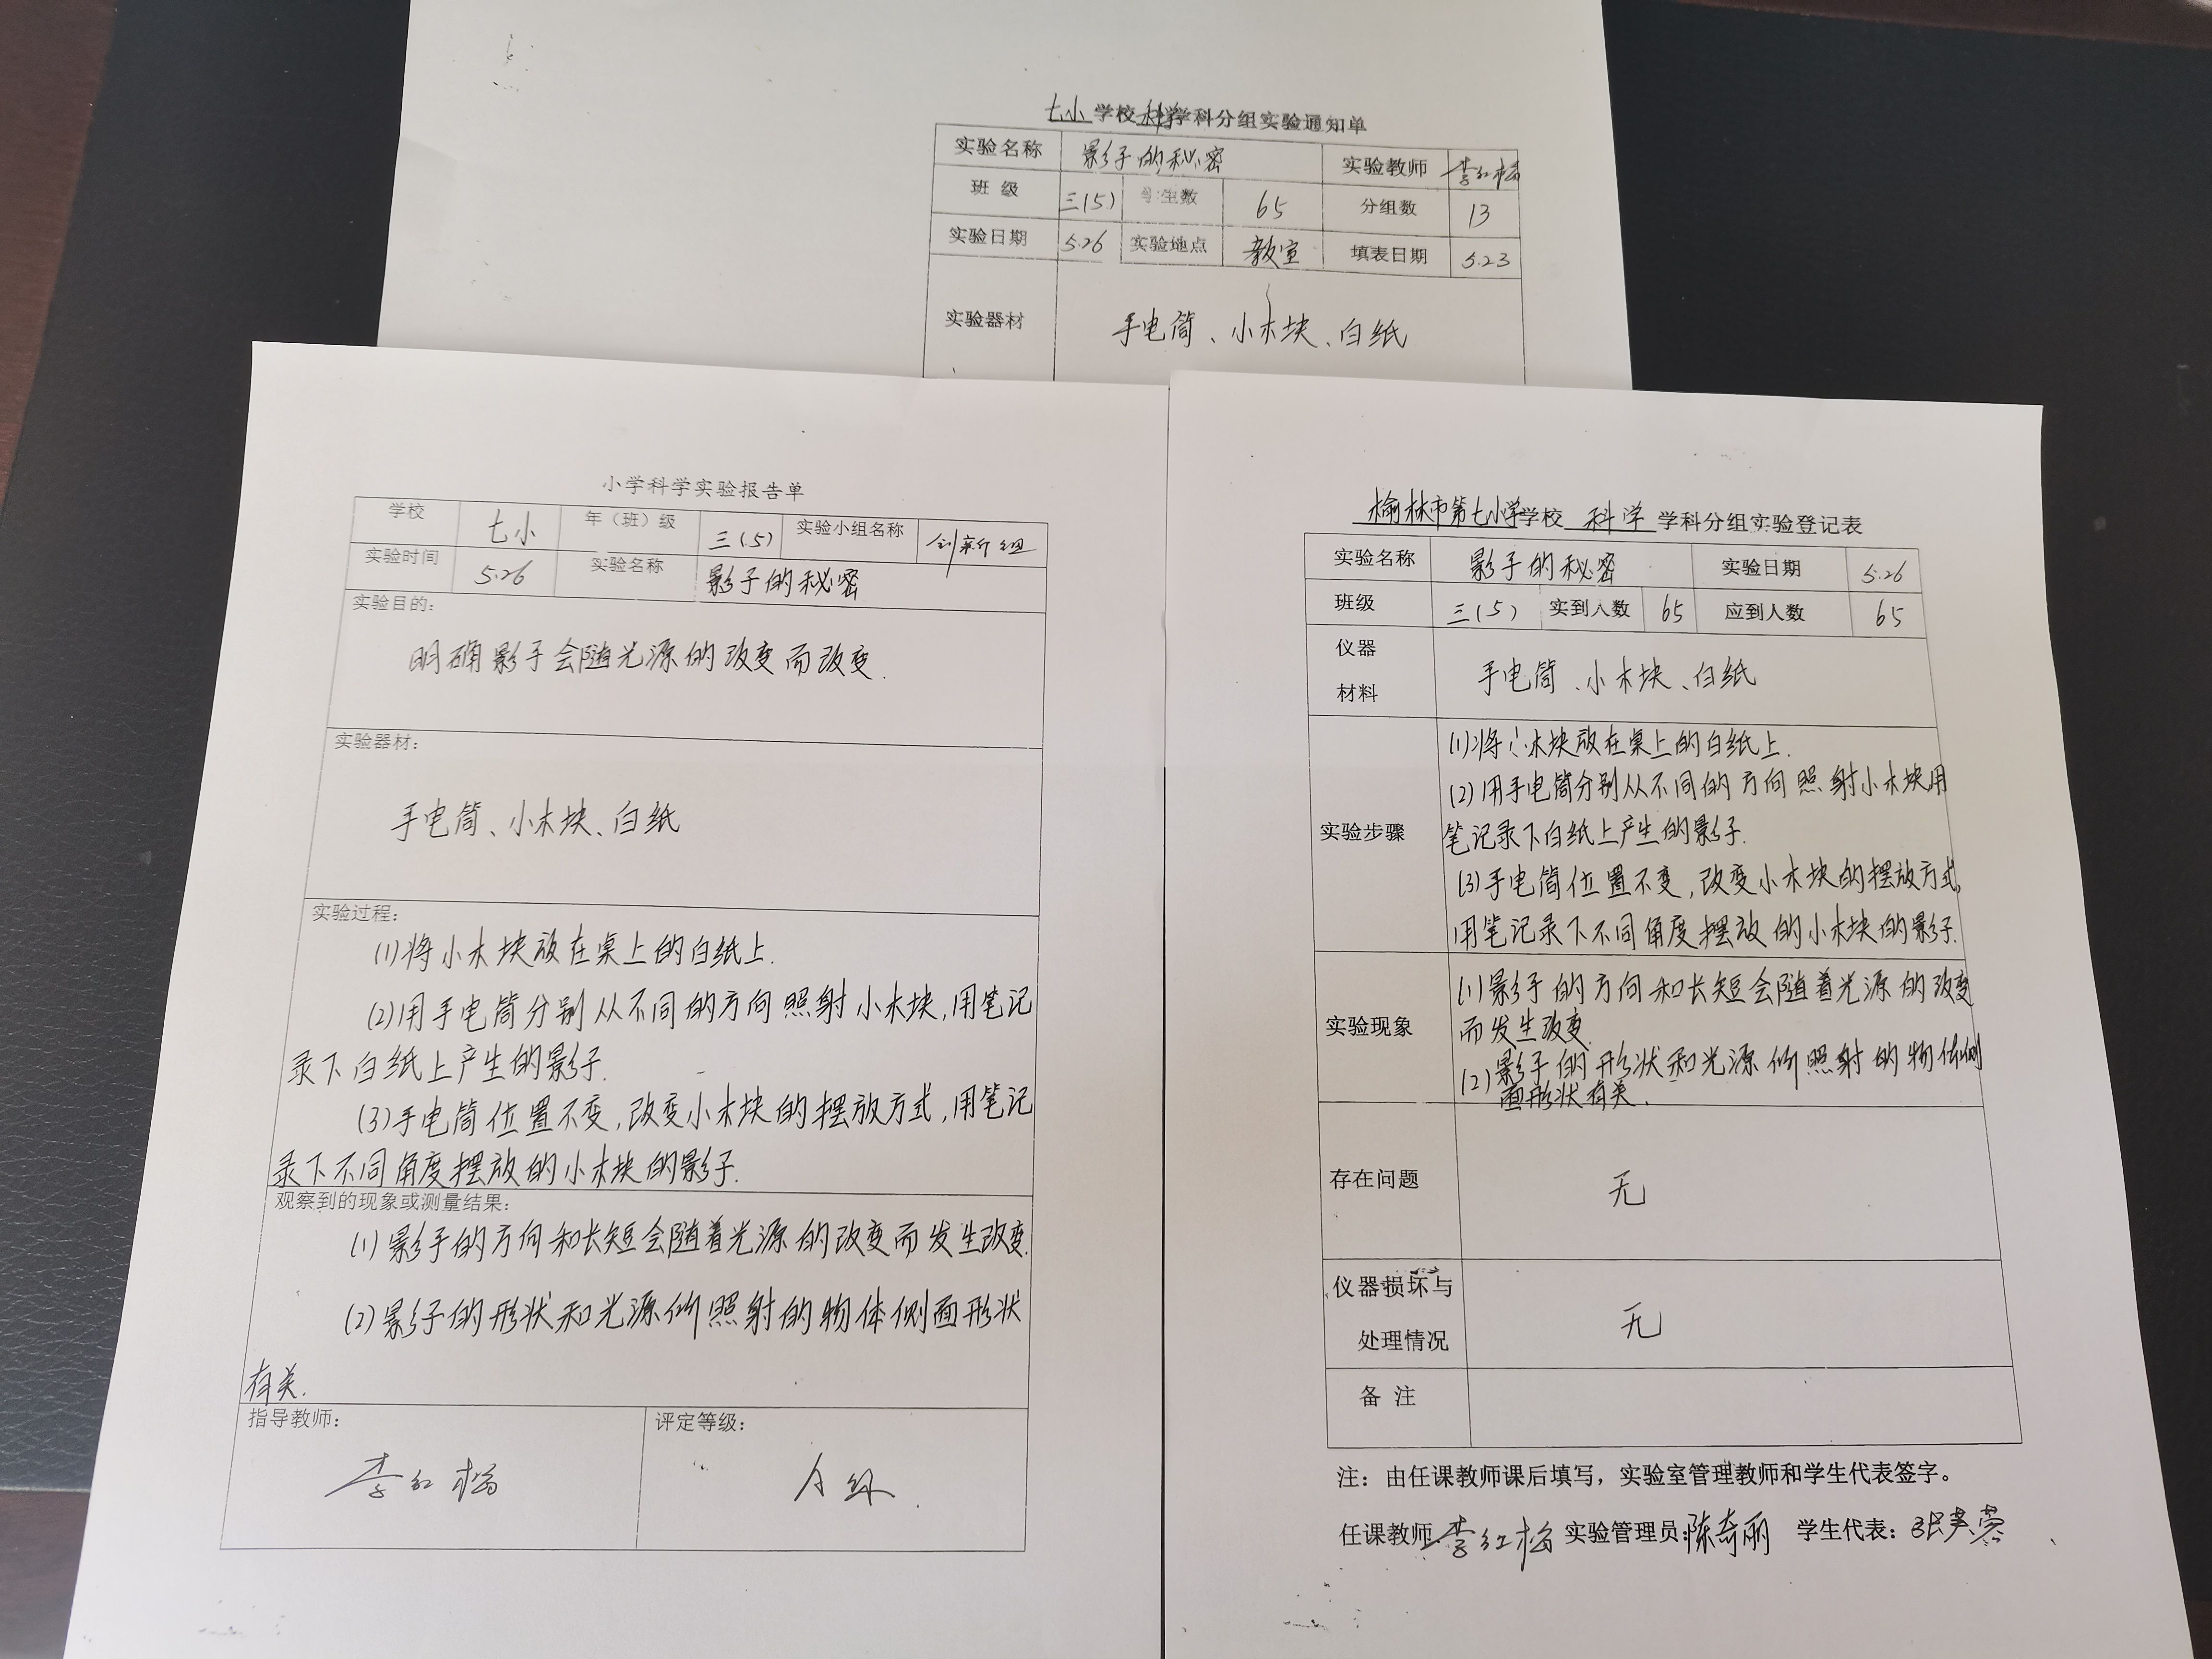 七小 学校 科学 学科分组实验通知单
实验名称 影子的秘密 实验教师 李红梅
班 级 三(5) 学生数 65 分组数 13
实验日期 5.26 实验地点 教室 填表日期 5.23
实验器材 手电筒、小木块、白纸
小学科学实验报告单
学校 七小 年（班）级 三(5) 实验小组名称 创新组
实验时间 5.26 实验名称 影子的秘密
实验目的：
明确影子会随光源的改变而改变.
实验器材：
手电筒、小木块、白纸
实验过程：
(1)将小木块放在桌上的白纸上.
(2)用手电筒分别从不同的方向照射小木块,用笔记
录下白纸上产生的影子.
(3)手电筒位置不变,改变小木块的摆放方式,用笔记
录下不同角度摆放的小木块的影子.
观察到的现象或测量结果：
(1)影子的方向和长短会随着光源的改变而发生改变.
(2)影子的形状和光源所照射的物体侧面形状
有关.
指导教师： 评定等级：
李红梅 A级.
榆林市第七小学 学校 科学 学科分组实验登记表
实验名称 影子的秘密 实验日期 5.26
班级 三(5) 实到人数 65 应到人数 65
仪器
材料
手电筒、小木块、白纸
实验步骤
(1)将小木块放在桌上的白纸上.
(2)用手电筒分别从不同的方向照射小木块用
笔记录下白纸上产生的影子.
(3)手电筒位置不变,改变小木块的摆放方式,
用笔记录下不同角度摆放的小木块的影子.
实验现象
(1)影子的方向和长短会随着光源的改变
而发生改变.
(2)影子的形状和光源所照射的物体侧
面形状有关.
存在问题 无
仪器损坏与
处理情况
无
备 注
注：由任课教师课后填写，实验室管理教师和学生代表签字。
任课教师 李红梅 实验管理员:陈奇丽 学生代表：